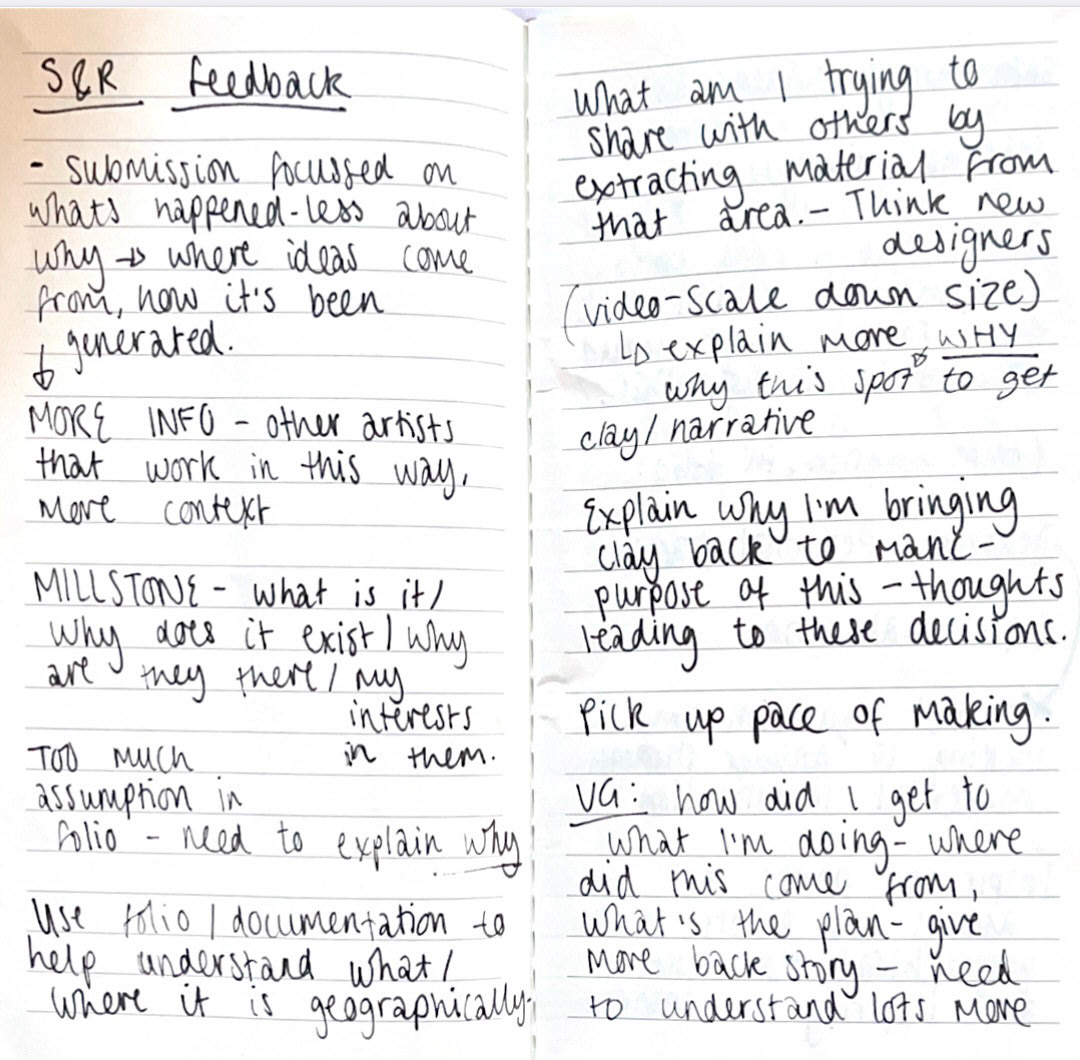 S&R feedback
- submission focussed on
whats happened - less about
why → where ideas come
from, how it's been
generated.
↓
MORE INFO - other artists
that work in this way,
More context
MILLSTONE - what is it /
why does it exist / why
are they there / my
interests
in them.
TOO MUCH
assumption in
folio - need to explain why
Use folio / documentation to
help understand what /
where it is geographically.
What am I trying to
share with others by
extracting material from
that area. - Think new
designers
(video - scale down size)
↳ explain more WHY
why this spot to get
clay / narrative
Explain why I'm bringing
clay back to Manc -
purpose of this - thoughts
leading to these decisions.
Pick up pace of making.
VG: how did I get to
what I'm doing - where
did this come from,
what's the plan - give
more back story - need
to understand lots more